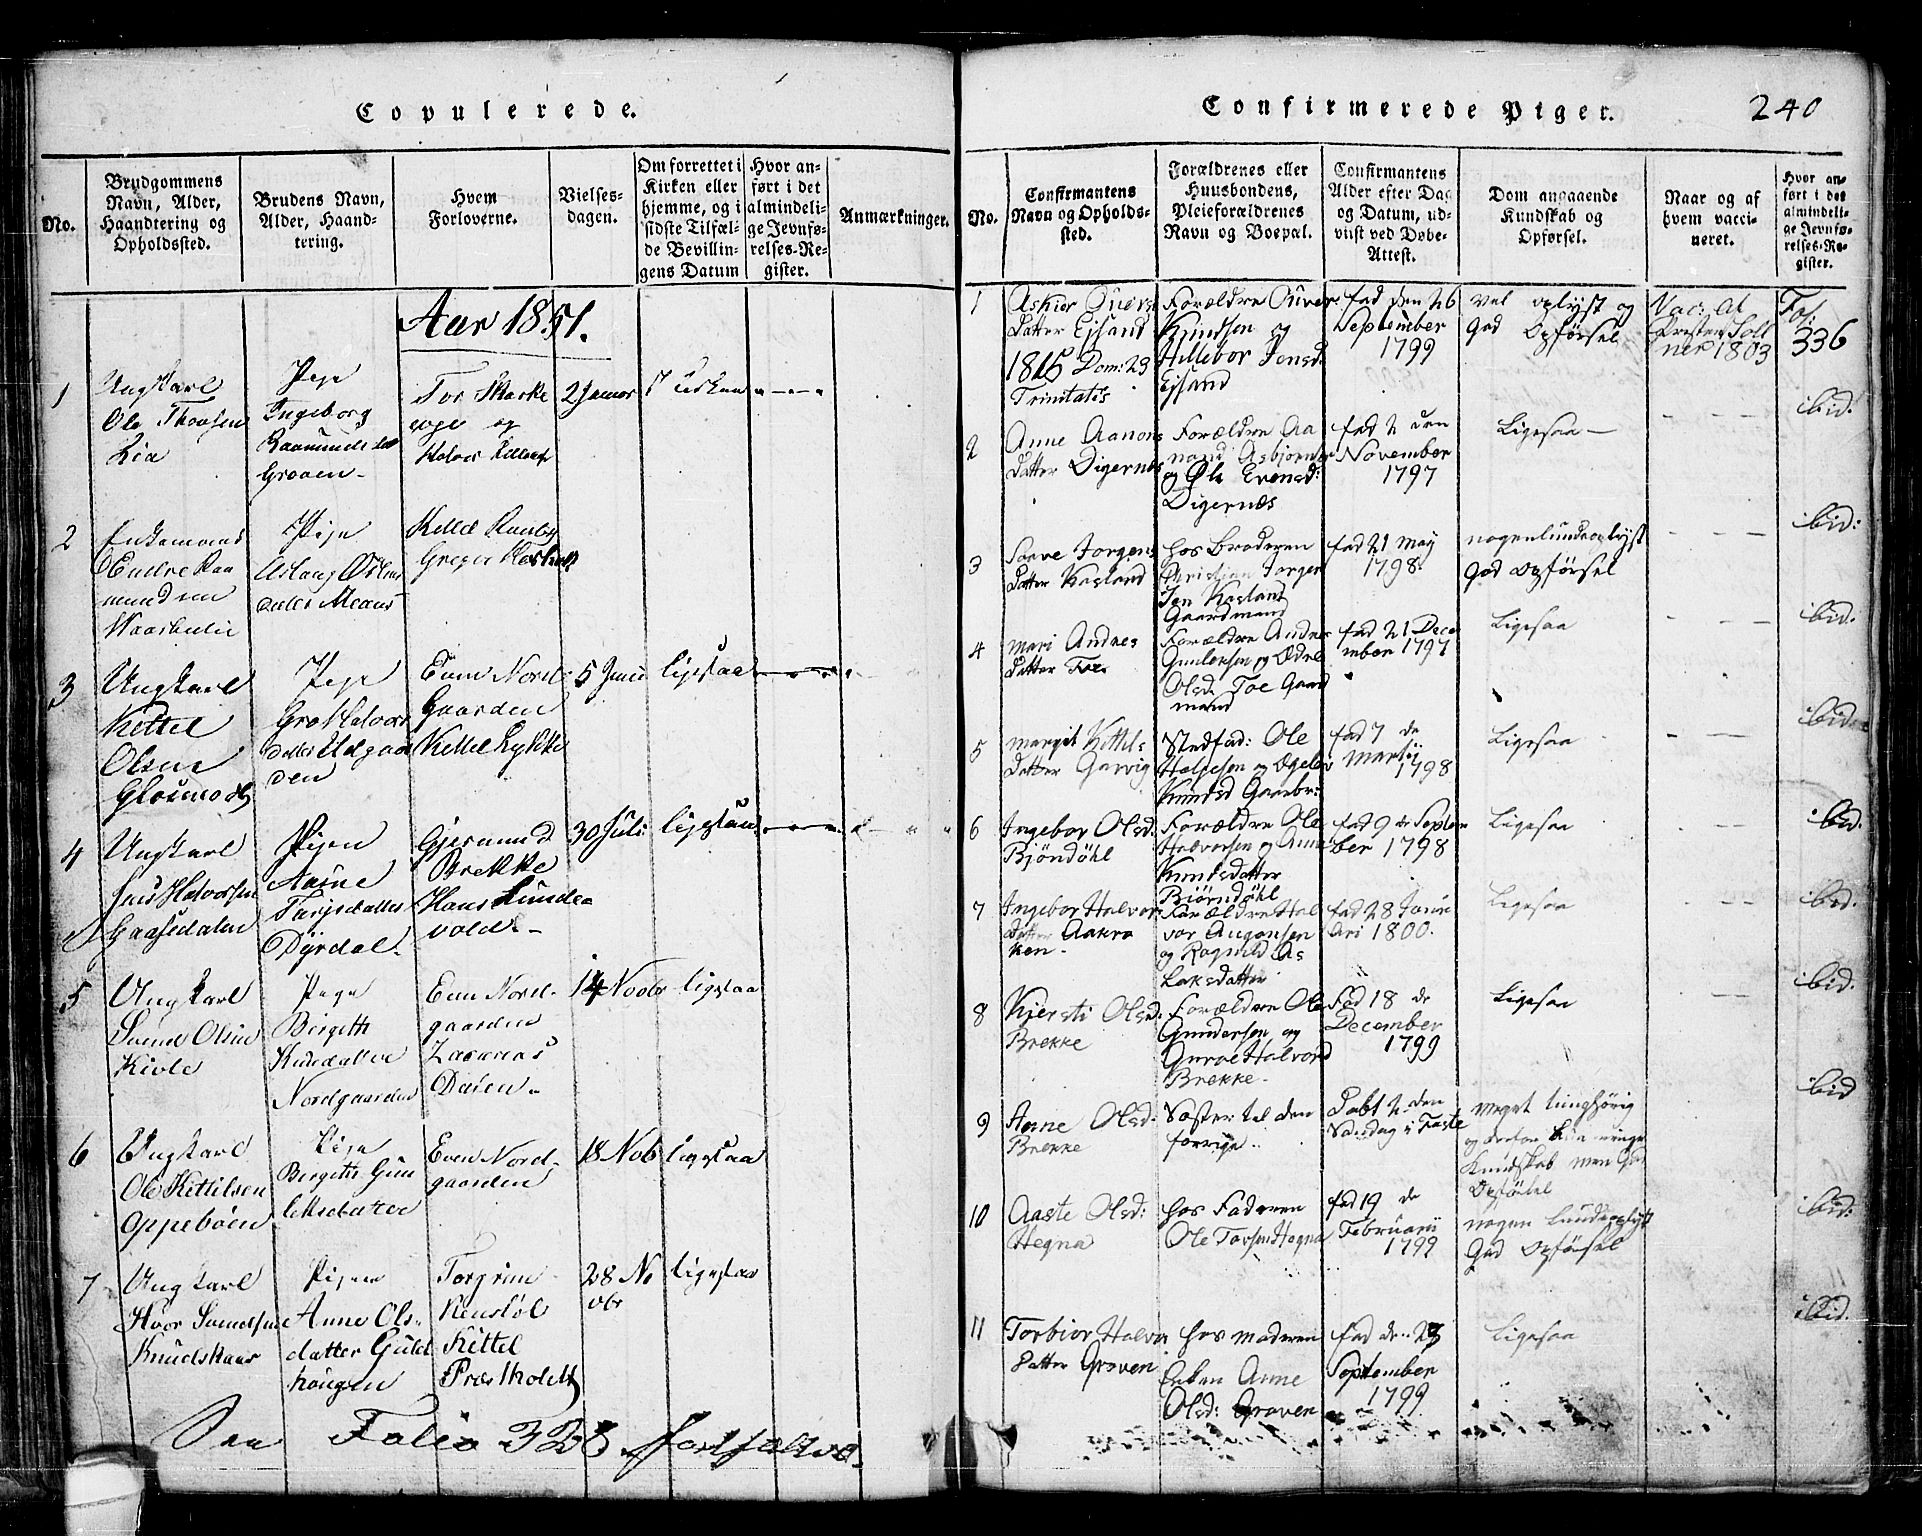 Copulerede.
No.
Brudgommens
Navn, Alder,
Haandtering og
Opholdssted.
Brudens Navn,
Alder, Haand-
tering.
Hvem
Forloverne.
Vielses-
dagen.
Om forrettet i
Kirken eller
hjemme, og i
sidste Tilfæl-
de Bevillin-
gens Datum
Hvor an-
ført i det
almindeli-
ge Jevnfø-
relses-Re-
gister.
Anmærkninger.
Aar 1851.
1
Ungkarl
Ole
Lia
Pige
Ingeborg
Graven
Tor
og
2 Januar
2
Enkemand
Endre Raa
Pige
Aslaug
datter
Kettel
Greger
3
Ungkarl
Kettel
Olsen
Pige
Gro Halvors
datter
den
Even Nord
Gaarden
Kettel Lykke
5 Juni
ligesaa
4
Ungkarl
Jens Halvorsen
Gaasedalen
Pigen
Aasne
Tarjedatter
Dyrdal.
Gjermund
Brekke
Hans Lunde
vold
30 Juli
ligesaa
5
Ungkarl
Svend Olsen
Kivle
Pige
Birgith
Nordgaarden
Even Nord-
gaarden
Zacarias
Dasen
14 Novbr
ligesaa
6
Ungkarl
Ole Kittilsen
Oppeböen
Pige
Birgith Gun
leksdatter
Even Nord-
gaarden
18 Nob
ligesaa
7
Ungkarl
Svendsen
Knudskaas
Pigen
Anne Ols-
datter Guld
haugen
Torgrim
Kittel
Præstholdt
28 No
vbr
ligesaa
See Folio 328 fortsættes.
Confirmerede Piger.
240
No.
Confirmantens
Navn og Opholds-
sted.
Forældrenes eller
Huusbondens,
Pleieforældrenes
Navn og Boepæl.
Confirmantens
Alder efter Dag
og Datum, ud-
viist ved Døbe-
Attest.
Dom angaaende
Kundskab og
Opførsel.
Naar og af
hvem vacci-
neret.
Hvor an-
ført i det
almindeli-
ge Jevnfø-
relses-Re-
gister.
1
Datter Ejsand
1815 Dom: 23
Trinitatis
Forældre
Knudsen og
Hellebor Jonsd:
Ejsand
fød den 26
September
1799
vel oplyst og
God Opførsel
Vac: af
Presten
1803
Fol:
336
2
Anne Aanons
Datter Digernes
Forældre Aa
nond Asbjørnsen
og Øli Evensd:
Digernæs
fød 2 den
November
1797
Ligesaa —
ibid:
3
Jorgens
Datter Kasland
hos Broderen
Christian Jorgen
sen Kasland
Gaardmand
fød 21 May
1798.
nogenlunde oplyst
God Opførsel
ibid:
4
Mari Andres
Datter Toe.
Forældre Andres
Gunlexsen og
Olsd. Toe Gaard
mand
fød 21 Dece
mber 1797
Ligesaa
ibid.
5
Margit Kettels
Datter Garvig
Stedfad: Ole
og
Knudsd
fød 7 de
Martij
1798
Ligesaa
ibid.
6
Ingebor Olsd:
Bjöndöhl
Forældre Ole
Halvorsen og Anne
Knudsdatter
Björndöhl
fød 9 de Septem
ber 1798
Ligesaa
ibid.
7
Ingebor Halvor
Datter Aakra
ken.
Forældre Hal
vor Augonsen
og Ragnild As
laksdatter
fød 28 Janu
ari 1800.
Ligesaa
ibid.
8
Kjersti Olsd:
Brekke
Forældre Ole
Gundersen og
Halvord
Brekke.
Fød 18 de
December
1799
Ligesaa
ibid.
9
Anne Olsd:
Brekke
Søster til den
forrige.
Døbt 2 den
Søndag i Faste
meget tunghörig
og derfor
Kundskab men God
Opførsel
ibid
10
Aaste Olsd:
Hegna
hos Faderen
Ole Torsen Hegna
fød 19 de
Februarii
1799
nogen lunde oplyst
God Opførsel
ibid:
11
Torbior Halvor
Datter Graven
hos Moderen
Enken Anne
Olsd: Graven
fød de 23
September
1799
Ligesaa
ibid.